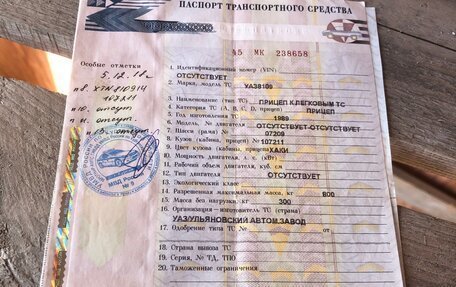 ПАСПОРТ ТРАНСПОРТНОГО СРЕДСТВА
45 МК 238658
Особые отметки
5.12.18г
п8. XTN810914
107211
п10. отсут
п11. отсут.
п13. отсут.
№ 9
1. Идентификационный номер (VIN)
ОТСУТСТВУЕТ
2. Марка, модель ТС УАЗ8109
3. Наименование (тип ТС) ПРИЦЕП К ЛЕГКОВЫМ ТС
4. Категория ТС (А, В, С, D, прицеп) ПРИЦЕП
5. Год изготовления ТС 1989
6. Модель, № двигателя ОТСУТСТВУЕТ-ОТСУТСТВУЕТ
7. Шасси (рама) № 07209
8. Кузов (кабина, прицеп) № 107211
9. Цвет кузова (кабины, прицепа) ХАКИ
10. Мощность двигателя, л. с. (кВт)
11. Рабочий объем двигателя, куб. см
12. Тип двигателя ОТСУТСТВУЕТ
13. Экологический класс
14. Разрешенная максимальная масса, кг 800
15. Масса без нагрузки, кг 300
16. Организация-изготовитель ТС (страна)
УАЗ/УЛЬЯНОВСКИЙ АВТОМ.ЗАВОД
17. Одобрение типа ТС № от
18. Страна вывоза ТС
19. Серия, № ТД, ТПО
20. Таможенные ограничения